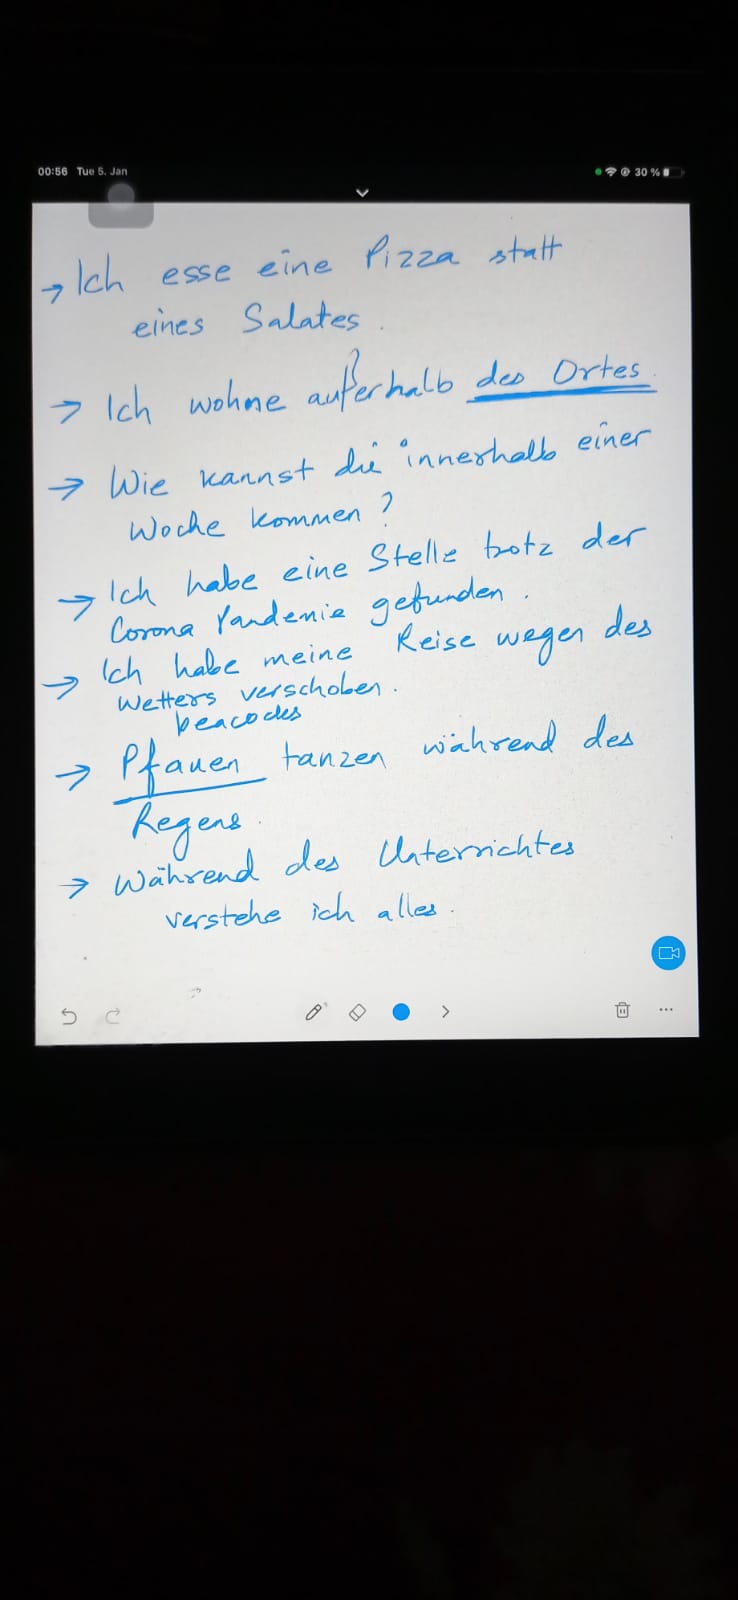 00:56 Tue 5. Jan 30 %
→ Ich esse eine Pizza statt
eines Salates.
→ Ich wohne außerhalb des Ortes.
→ Wie kannst du innerhalb einer
Woche kommen?
→ Ich habe eine Stelle trotz der
Corona Pandemie gefunden.
→ Ich habe meine Reise wegen des
Wetters verschoben.
peacocks
→ Pfauen tanzen während des
Regens.
→ Während des Unterrichtes
verstehe ich alles.